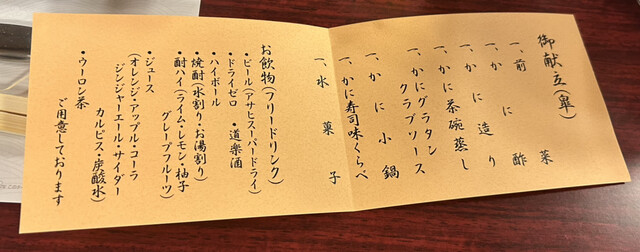 御献立(皐)
一、前菜
一、かに酢
一、かに造り
一、かに茶碗蒸し
一、かにグラタン
クラブソース
一、かに小鍋
一、かに寿司味くらべ
一、水菓子
お飲物(フリードリンク)
・ビール(アサヒスーパードライ)
・ドライゼロ ・道楽酒
・ハイボール
・焼酎(水割り・お湯割り)
・酎ハイ(ライム・レモン・柚子
グレープフルーツ)
・ジュース
(オレンジ・アップル・コーラ
ジンジャーエール・サイダー
カルピス・炭酸水)
・ウーロン茶
ご用意しております